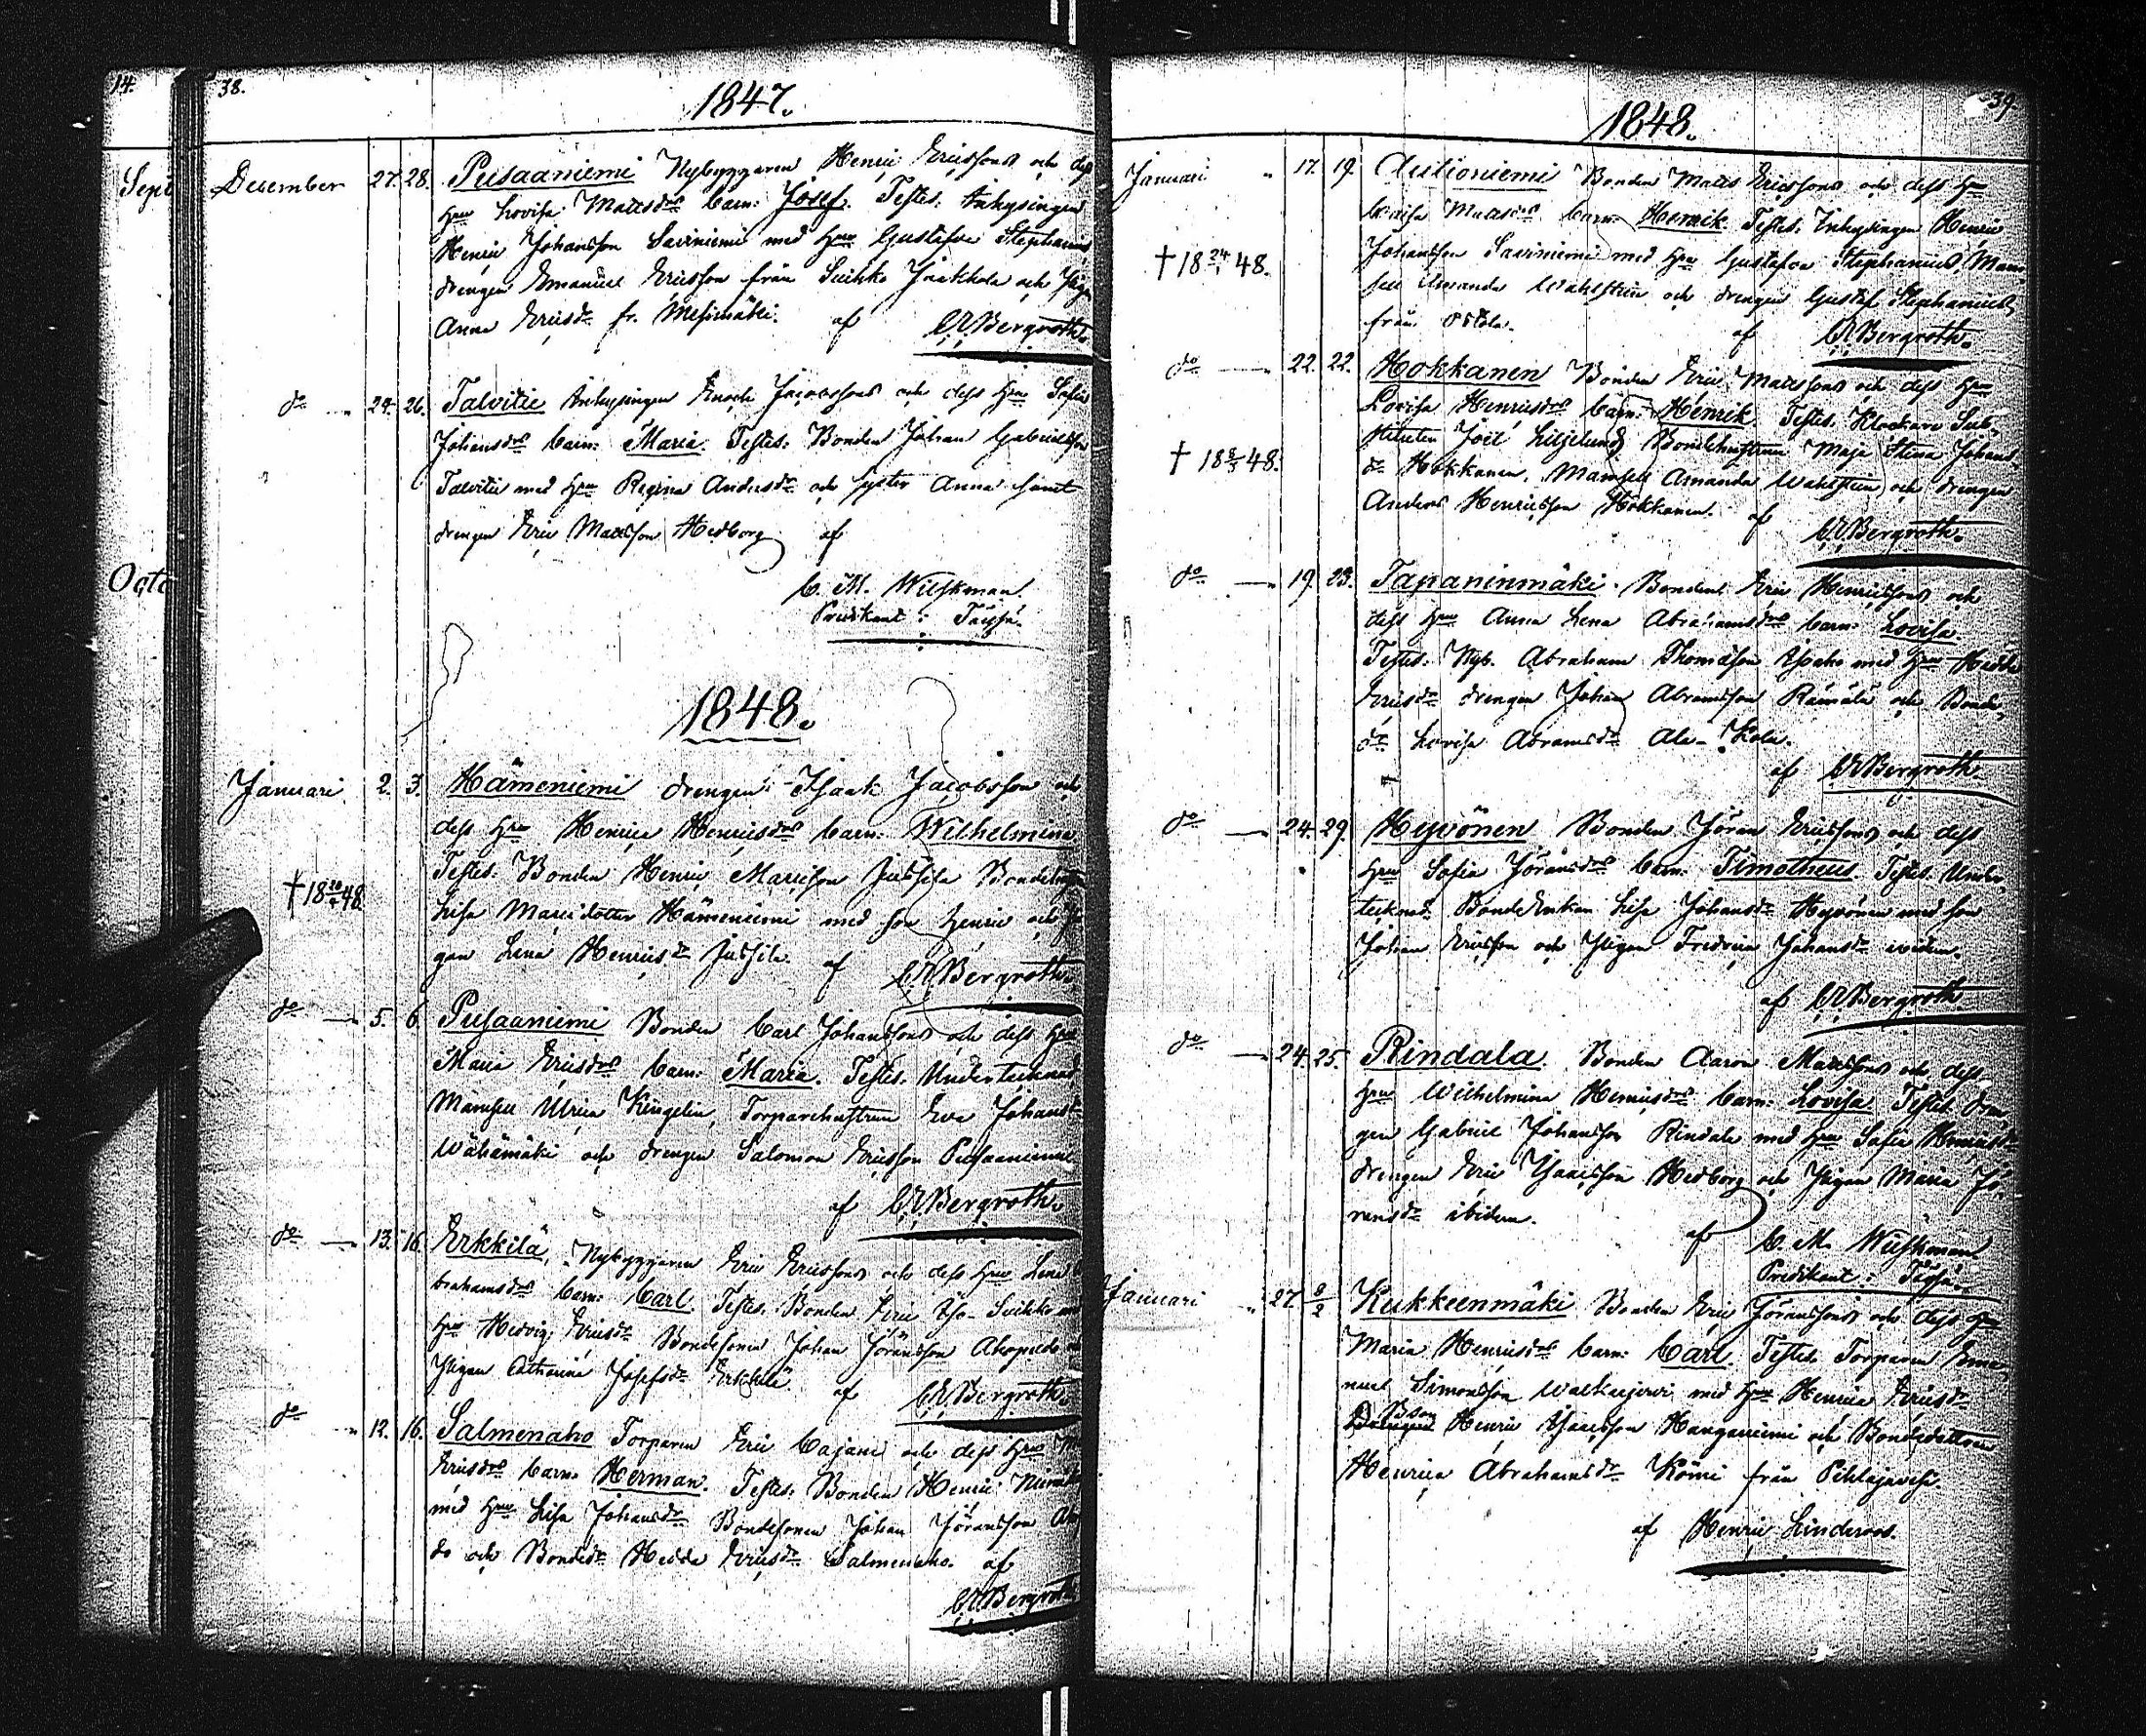 14.
Sept
Octo
38.
1847.
December 27. 28. Pusaaniemi Nybyggaren Henric Ericssons och dess
hru Lovisa Mattsdrs barn: Josef. Testes. Inhysingen
Henric Johansson Saviniemi med hru Gustafva Stephansd
drengen Emanuel Ericsson från Suikko Jaakkola och Pig
Anna Ericsdr fr. af CEBergroth.
do 24. 26. Talvitie Inhysingen Enoch Jacobssons och dess hru Sofia
Johansdrs barn: Maria. Testes: Bonden Johan Gabrielsson
Talvitie med hru Regina Andersdr och syster Anna samt
drengen Eric Mattsson Hedborg af
C. M. Wichman.
Predikant i Töysä.
1848.
Januari 2. 3. Hämeniemi drengen Isaak Jacobsson och
dess hru Henrica Henricsdrs barn: Wilhelmina.
Testes. Bonden Henric Jussila
† 18 48.
Lisa Hämeniemi med son Henric och Pi
gan Lena Henricsdr Jussila. af CEBergroth.
do 5. 6. Pusaaniemi Bonden Carl Johanssons och dess hru
Maria Ericsdrs barn: Maria. Testes. Undertecknad
Mamsell Ulrica Kingelin, Torparehustrun Eva Johansdr
Wähämäki och drengen Salomon Ericsson Pusaaniemi
af CEBergroth.
do 13. 16. Erkkilä, Nybyggaren Eric Ericssons och dess hru Lena A
brahamsdrs barn: Carl. Testes. Bonden Eric Iso-Suikko med
hru Hedvig Ericsdr Bondesonen Johan Jöransson Ahopelto och
Pigan Catharina Josefsdr Erkkilä. af CEBergroth.
do 12. 16. Salmenaho Torparen Eric Cajani och dess hru
Ericsdrs barn: Herman. Testes: Bonden Henric
med hru Lisa Johansdr Bondesonen Johan Jöransson
do och Bondedr Hedda Ericsdr Salmenaho. af
CEBergroth
39.
1848.
Januari 17. 19. Autioniemi Bonden Matts Ericssons och dess hru
Caisa Mattsdrs barn: Henrik. Testes. Inhysingen Henric
Johansson Saviniemi med hru Gustafva Stephansdr, Mam
† 18 24/1 48.
sell Amanda Wahlsten och drengen Gustaf Stephansson
från Ostola. af CEBergroth.
do 22. 22. Hokkanen Bonden Eric Mattssons och dess hru
Lovisa Henricsdrs barn: Henrik. Testes. Klockare Sub-
stituten Joel Liljelund, Bondehustrun Maja Stina Johans-
† 18 48.
dr Hokkanen, Mamsell Amanda Wahlsten och drengen
Anders Henricsson Hokkanen. af
CEBergroth.
do 19. 23. Tapaninmäki. Bonden Eric Henricssons och
dess hru Anna Lena Abrahamsdrs barn: Lovisa.
Testes. Nyb. Abraham Thomasson Ypaho med hru Hedda
Ericsdr drengen Johan Abramsson Rämälä och Bonde-
dr Lovisa Abramsdr Ala-Kola.
af CEBergroth
do 24. 29. Hyvönen Bonden Jöran Ericssons och dess
hru Sofia Jöransdrs barn: Timotheus. Testes. Under-
tecknad. BondeEnkan Lisa Johansdr Hyvönen med son
Johan Ericsson och Pigan Fredrica Johansdr ibidem.
af CEBergroth
do 24. 25. Rindala. Bonden Aaron Mattssons och dess
hru Wilhelmina Henricsdrs barn: Lovisa. Testes. Dren
gen Gabriel Johansson Rindala med hru Sofia Henricsdr
drengen Eric Isaacsson Hedborg och Pigan Maria Jö-
ransdr ibidem.
af C. M. Wichman
Predikant i Töysä.
Januari 27. 8/2 Kukkeenmäki Bonden Eric Jöranssons och dess hru
Maria Henricsdrs barn: Carl. Testes. Torparen Ema
nuel Simonsson Walkejervi med hru Henrica Ericsdr
Bson
Drengen Henric Isaacsson Hanganiemi och Bondedottren
Henrica Abrahamsdr Kömi från Pihlajavesi.
af Henric Linderoos.